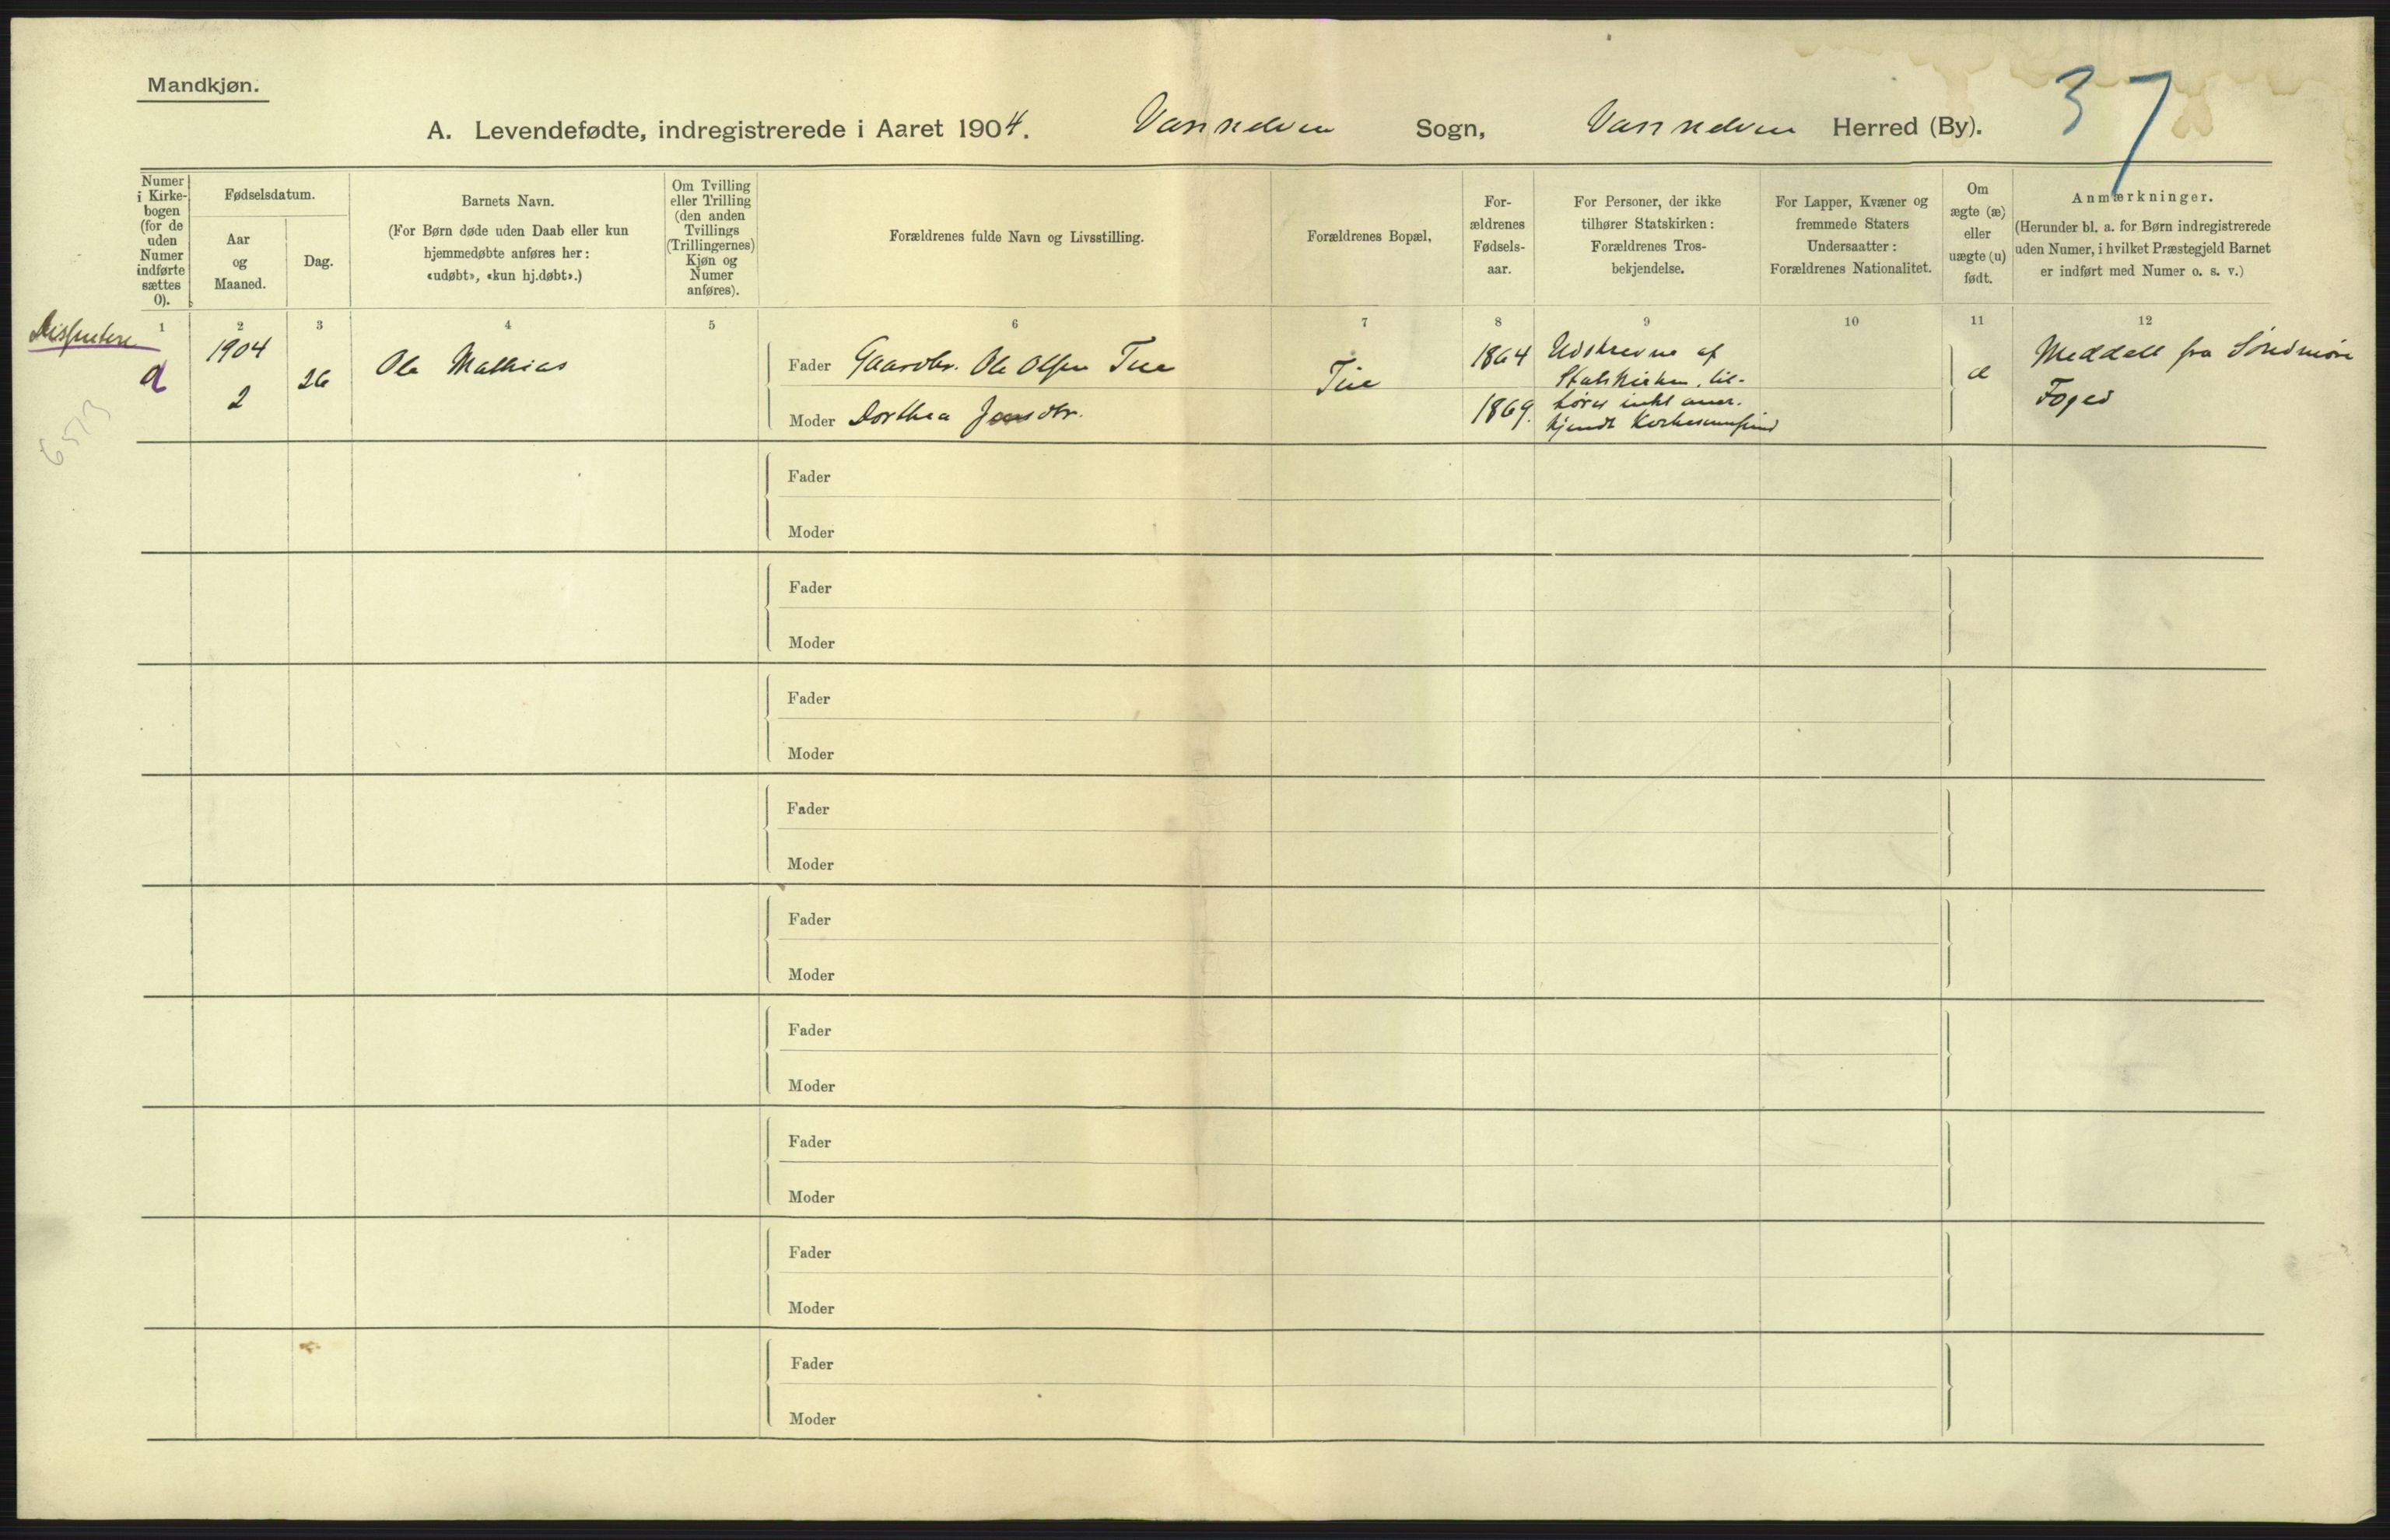 Mandkjøn.
37
A. Levendefødte, indregistrerede i Aaret 1904. Vannelven Sogn, Vannelven Herred (By).
Numer i Kirke-bogen (for de uden Numer indførte sættes 0).
Fødselsdatum.
Aar og Maaned.
Dag.
Barnets Navn.
(For Børn døde uden Daab eller kun
hjemmedøbte anføres her:
«udøbt», «kun hj.døbt».)
Om Tvilling
eller Trilling
(den anden
Tvillings
(Trillingernes)
Kjøn og
Numer
anføres).
Forældrenes fulde Navn og Livsstilling.
Forældrenes Bopæl,
For-
ældrenes
Fødsels-
aar.
For Personer, der ikke
tilhører Statskirken:
Forældrenes Tros-
bekjendelse.
For Lapper, Kvæner og
fremmede Staters
Undersaatter:
Forældrenes Nationalitet.
Om
ægte (æ)
eller
uægte (u)
født.
Anmærkninger.
(Herunder bl. a. for Børn indregistrerede
uden Numer, i hvilket Præstegjeld Barnet
er indført med Numer o. s. v.)
1 2 3 4 5 6 7 8 9 10 11 12
Dissentere
d
1904
2
26
Ole Mathias
Fader Gaardbr. Ole Olsen Tue
Moder Dorthea Jonsdtr.
Tue
1864
1869.
Udskrevne af
Statskirken, til-
hører intet aner-
kjendt Kirkesamfund
æ
Meddelt fra Søndmøre
Foged
6573
Fader
Moder
Fader
Moder
Fader
Moder
Fader
Moder
Fader
Moder
Fader
Moder
Fader
Moder
Fader
Moder
Fader
Moder